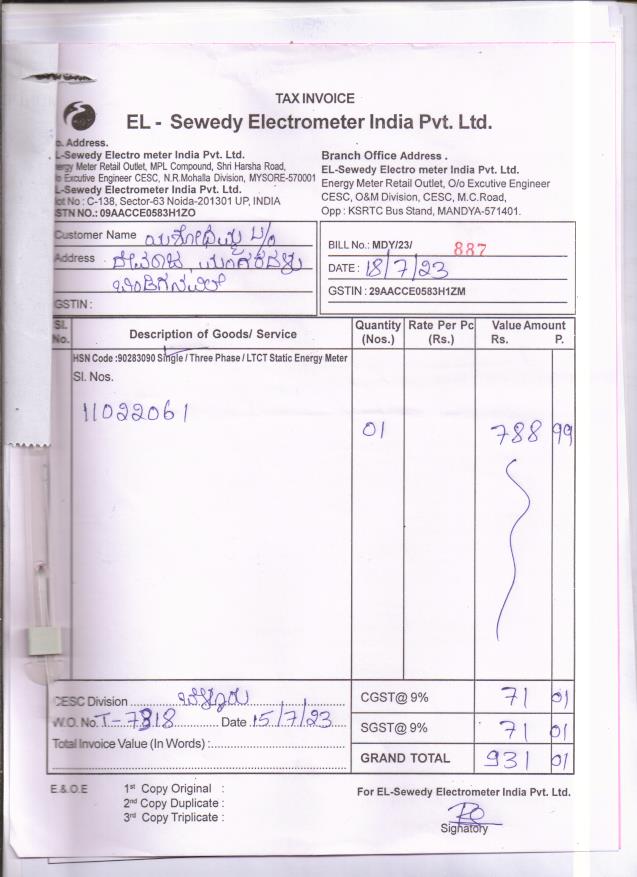 TAX INVOICE
EL - Sewedy Electrometer India Pvt. Ltd.
o. Address.
L-Sewedy Electro meter India Pvt. Ltd.
ergy Meter Retail Outlet, MPL Compound, Shri Harsha Road,
o Excutive Engineer CESC, N.R.Mohalla Division, MYSORE-570001
L-Sewedy Electrometer India Pvt. Ltd.
lot No : C-138, Sector-63 Noida-201301 UP, INDIA
STN NO.: 09AACCE0583H1ZO
Branch Office Address .
EL-Sewedy Electro meter India Pvt. Ltd.
Energy Meter Retail Outlet, O/o Excutive Engineer
CESC, O&M Division, CESC, M.C.Road,
Opp : KSRTC Bus Stand, MANDYA-571401.
Customer Name
Address
GSTIN :
BILL No.: MDY/23/ 887
DATE : 18/7/23
GSTIN : 29AACCE0583H1ZM
Sl. No. Description of Goods/ Service Quantity (Nos.) Rate Per Pc (Rs.) Value Amount Rs. P.
HSN Code :90283090 Single / Three Phase / LTCT Static Energy Meter
Sl. Nos.
11022061 01 788 99
CESC Division
W.O. No. T-7818 Date 15/7/23
Total Invoice Value (In Words) :
CGST@ 9% 71 01
SGST@ 9% 71 01
GRAND TOTAL 931 01
E.& O.E
1st Copy Original :
2nd Copy Duplicate :
3rd Copy Triplicate :
For EL-Sewedy Electrometer India Pvt. Ltd.
Signatory